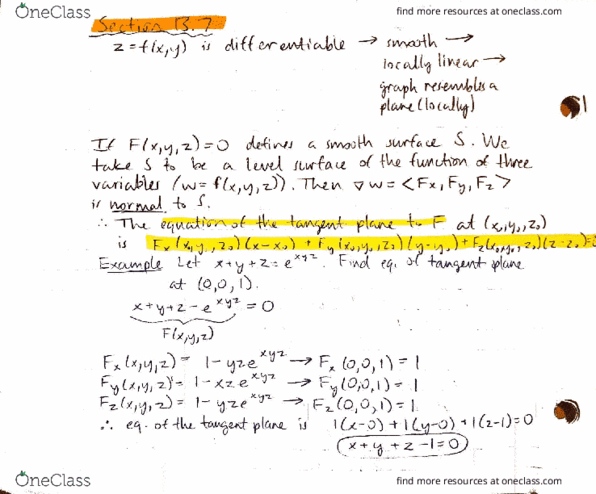 OneClass
find more resources at oneclass.com
Section 13.7
z = f(x,y) is differentiable → smooth →
locally linear →
graph resembles a
plane (locally)
If F(x,y,z) = 0 defines a smooth surface S. We
take S to be a level surface of the function of three
variables (w = f(x,y,z)). Then ∇w = <Fx, Fy, Fz>
is normal to S.
∴ The equation of the tangent plane to F at (x₀,y₀,z₀)
is Fx(x₀,y₀,z₀)(x-x₀) + Fy(x₀,y₀,z₀)(y-y₀) + Fz(x₀,y₀,z₀)(z-z₀)=0
Example Let x+y+z = e^xyz. Find eq. of tangent plane
at (0,0,1).
x+y+z - e^xyz = 0
F(x,y,z)
Fx(x,y,z) = 1 - yze^xyz → Fx(0,0,1) = 1
Fy(x,y,z) = 1 - xze^xyz → Fy(0,0,1) = 1
Fz(x,y,z) = 1 - yze^xyz → Fz(0,0,1) = 1
∴ eq. of the tangent plane is 1(x-0) + 1(y-0) + 1(z-1) = 0
x + y + z - 1 = 0
OneClass
find more resources at oneclass.com